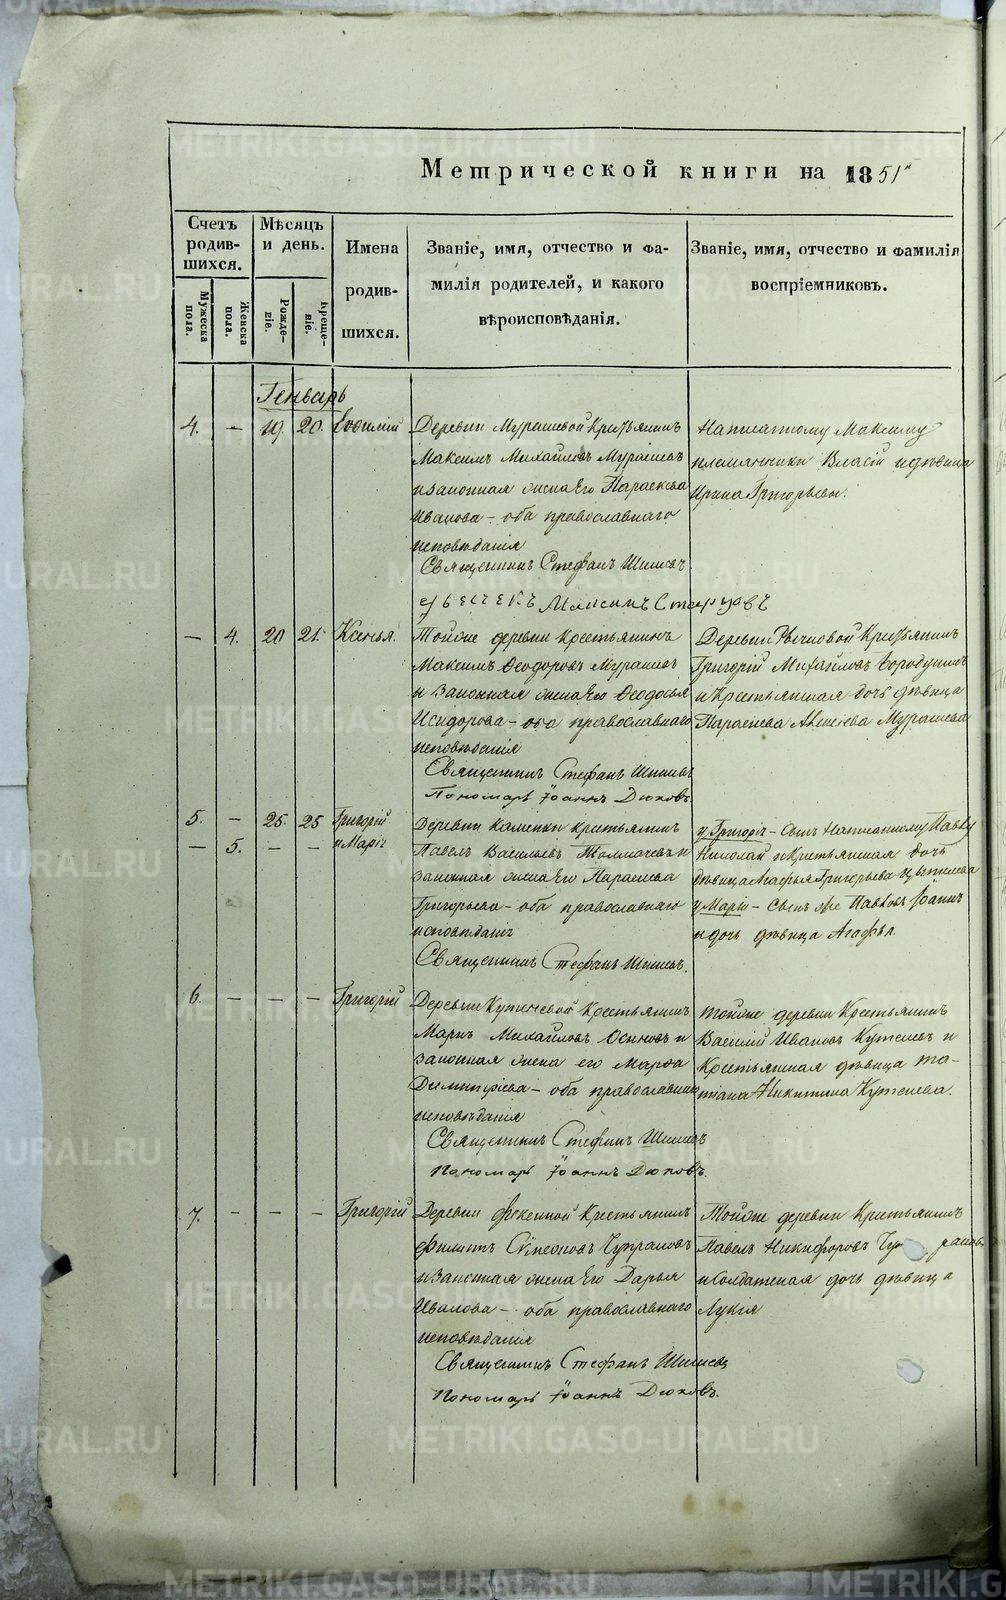 Метрической книги на 1851й
Счетъ родив- шихся.
Мѣсяцъ и день.
Имена родив- шихся.
Званіе, имя, отчество и фа- милія родителей, и какого вѣроисповѣданія.
Званіе, имя, отчество и фамилія воспріемниковъ.
Мужеска пола.
Женска пола.
Рожде- ніе.
Креще- ніе.
Генварь
4. – 19. 20. Евѳимій
Деревни Мурашевой Крестьянинъ
Максимъ Михайловъ Мурашевъ
и законная жена Его Параскева
Иванова – оба православнаго
исповѣданія
Священникъ Стефанъ Шишевъ
Максимъ Старцовъ
Написанному Максиму
племянники Власій и дѣвица
Ирина Григорьевы.
– 4. 20 21. Ксенья.
Тойже деревни крестьянинъ
Максимъ Ѳеодоровъ Мурашевъ
и законная жена Его Ѳеодосья
Исидорова – оба православнаго
исповѣданія
Священникъ Стефанъ Шишевъ
Пономарь Іоаннъ Дюковъ
Деревни Крестьянинъ
Григорій Михайловъ Бородулинъ
и Крестьянская дочь дѣвица
Параскева Алексіева Мурашева
5. – 25. 25 Григорій
– 5. – – и Марія
Деревни Каменки крестьянинъ
Павелъ Васильевъ Толмачевъ и
законная жена Его Параскева
Григорьева – оба православнаго
исповѣданія
Священникъ Стефанъ Шишевъ.
у Григорія – Сынъ Написанному Павлу
Николай и Крестьянская дочь
дѣвица Агафья Григорьева
у Маріи – Сынъ же Павловъ Іоаннъ
и дочь дѣвица Агафья
6. – – – Григорій
Деревни Крестьянинъ
Маркъ Михайловъ Осиновъ и
законная жена его Марѳа
Димитріева – оба православнаго
исповѣданія
Священникъ Стефанъ Шишевъ
Пономарь Іоаннъ Дюковъ.
Тойже деревни Крестьянинъ
Василій Ивановъ и
Крестьянская дѣвица Та-
тіана Никитина
7. – – – Григорій
Деревни Крестьянинъ
Филиппъ Симеоновъ Чупраловъ
и законная жена Его Дарья
Иванова – оба православнаго
исповѣданія
Священникъ Стефанъ Шишевъ
Пономарь Іоаннъ Дюковъ.
Тойже деревни Крестьянинъ
Павелъ Никифоровъ
и Солдатская дочь дѣвица
Лукія
METRIKI.GASO-URAL.RU